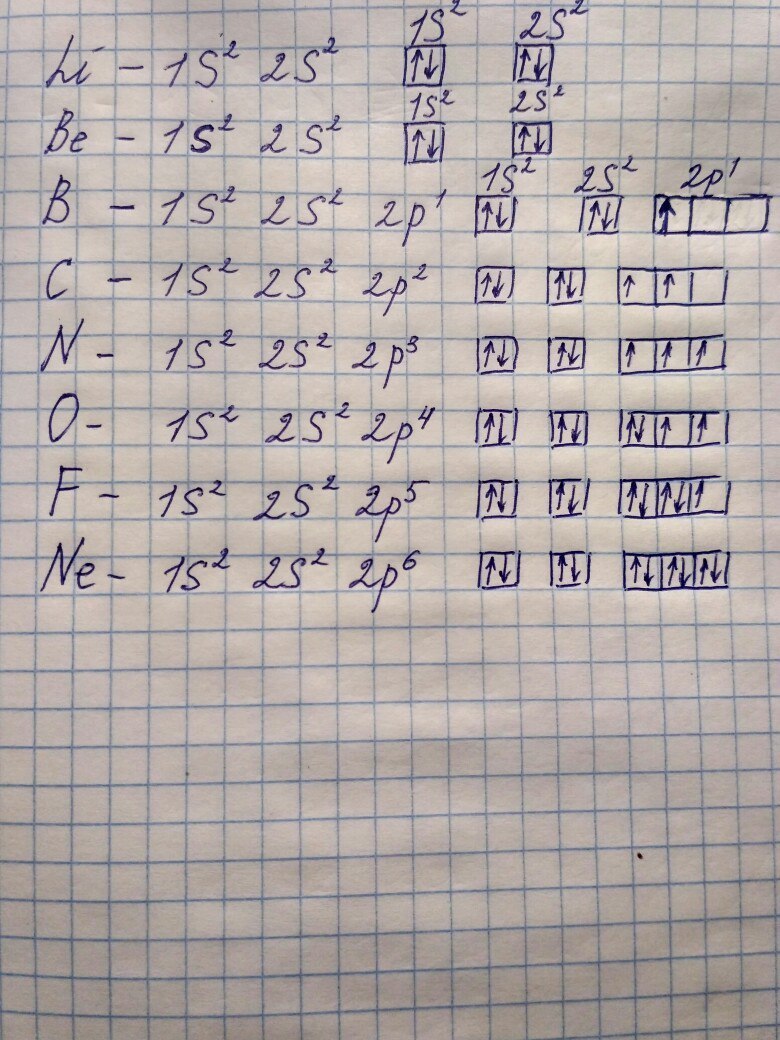 1S² 2S²
Li - 1S² 2S² ↑↓ ↑↓
1S² 2S²
Be - 1S² 2S² ↑↓ ↑↓
1S² 2S² 2p¹
B - 1S² 2S² 2p¹ ↑↓ ↑↓ ↑
C - 1S² 2S² 2p² ↑↓ ↑↓ ↑ ↑
N - 1S² 2S² 2p³ ↑↓ ↑↓ ↑ ↑ ↑
O - 1S² 2S² 2p⁴ ↑↓ ↑↓ ↑↓ ↑ ↑
F - 1S² 2S² 2p⁵ ↑↓ ↑↓ ↑↓ ↑↓ ↑
Ne - 1S² 2S² 2p⁶ ↑↓ ↑↓ ↑↓ ↑↓ ↑↓